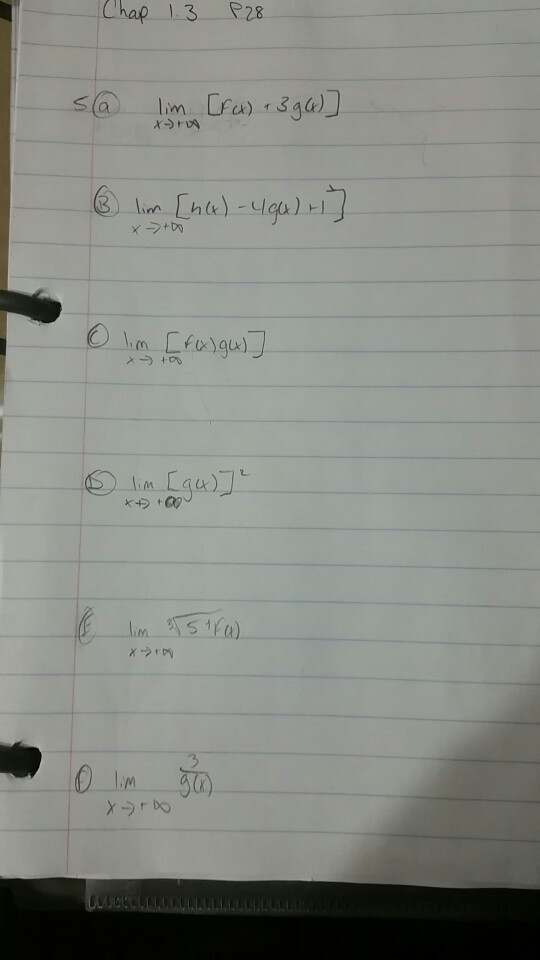 Chap 1.3 P28
5 (a) lim [f(x) + 3g(x)]
x→+∞
(B) lim [h(x) - 4g(x) + 1]
x→+∞
(C) lim [f(x)g(x)]
x→+∞
(D) lim [g(x)]²
x→+∞
(E) lim ∛5+f(x)
x→+∞
(F) lim 3/g(x)
x→+∞